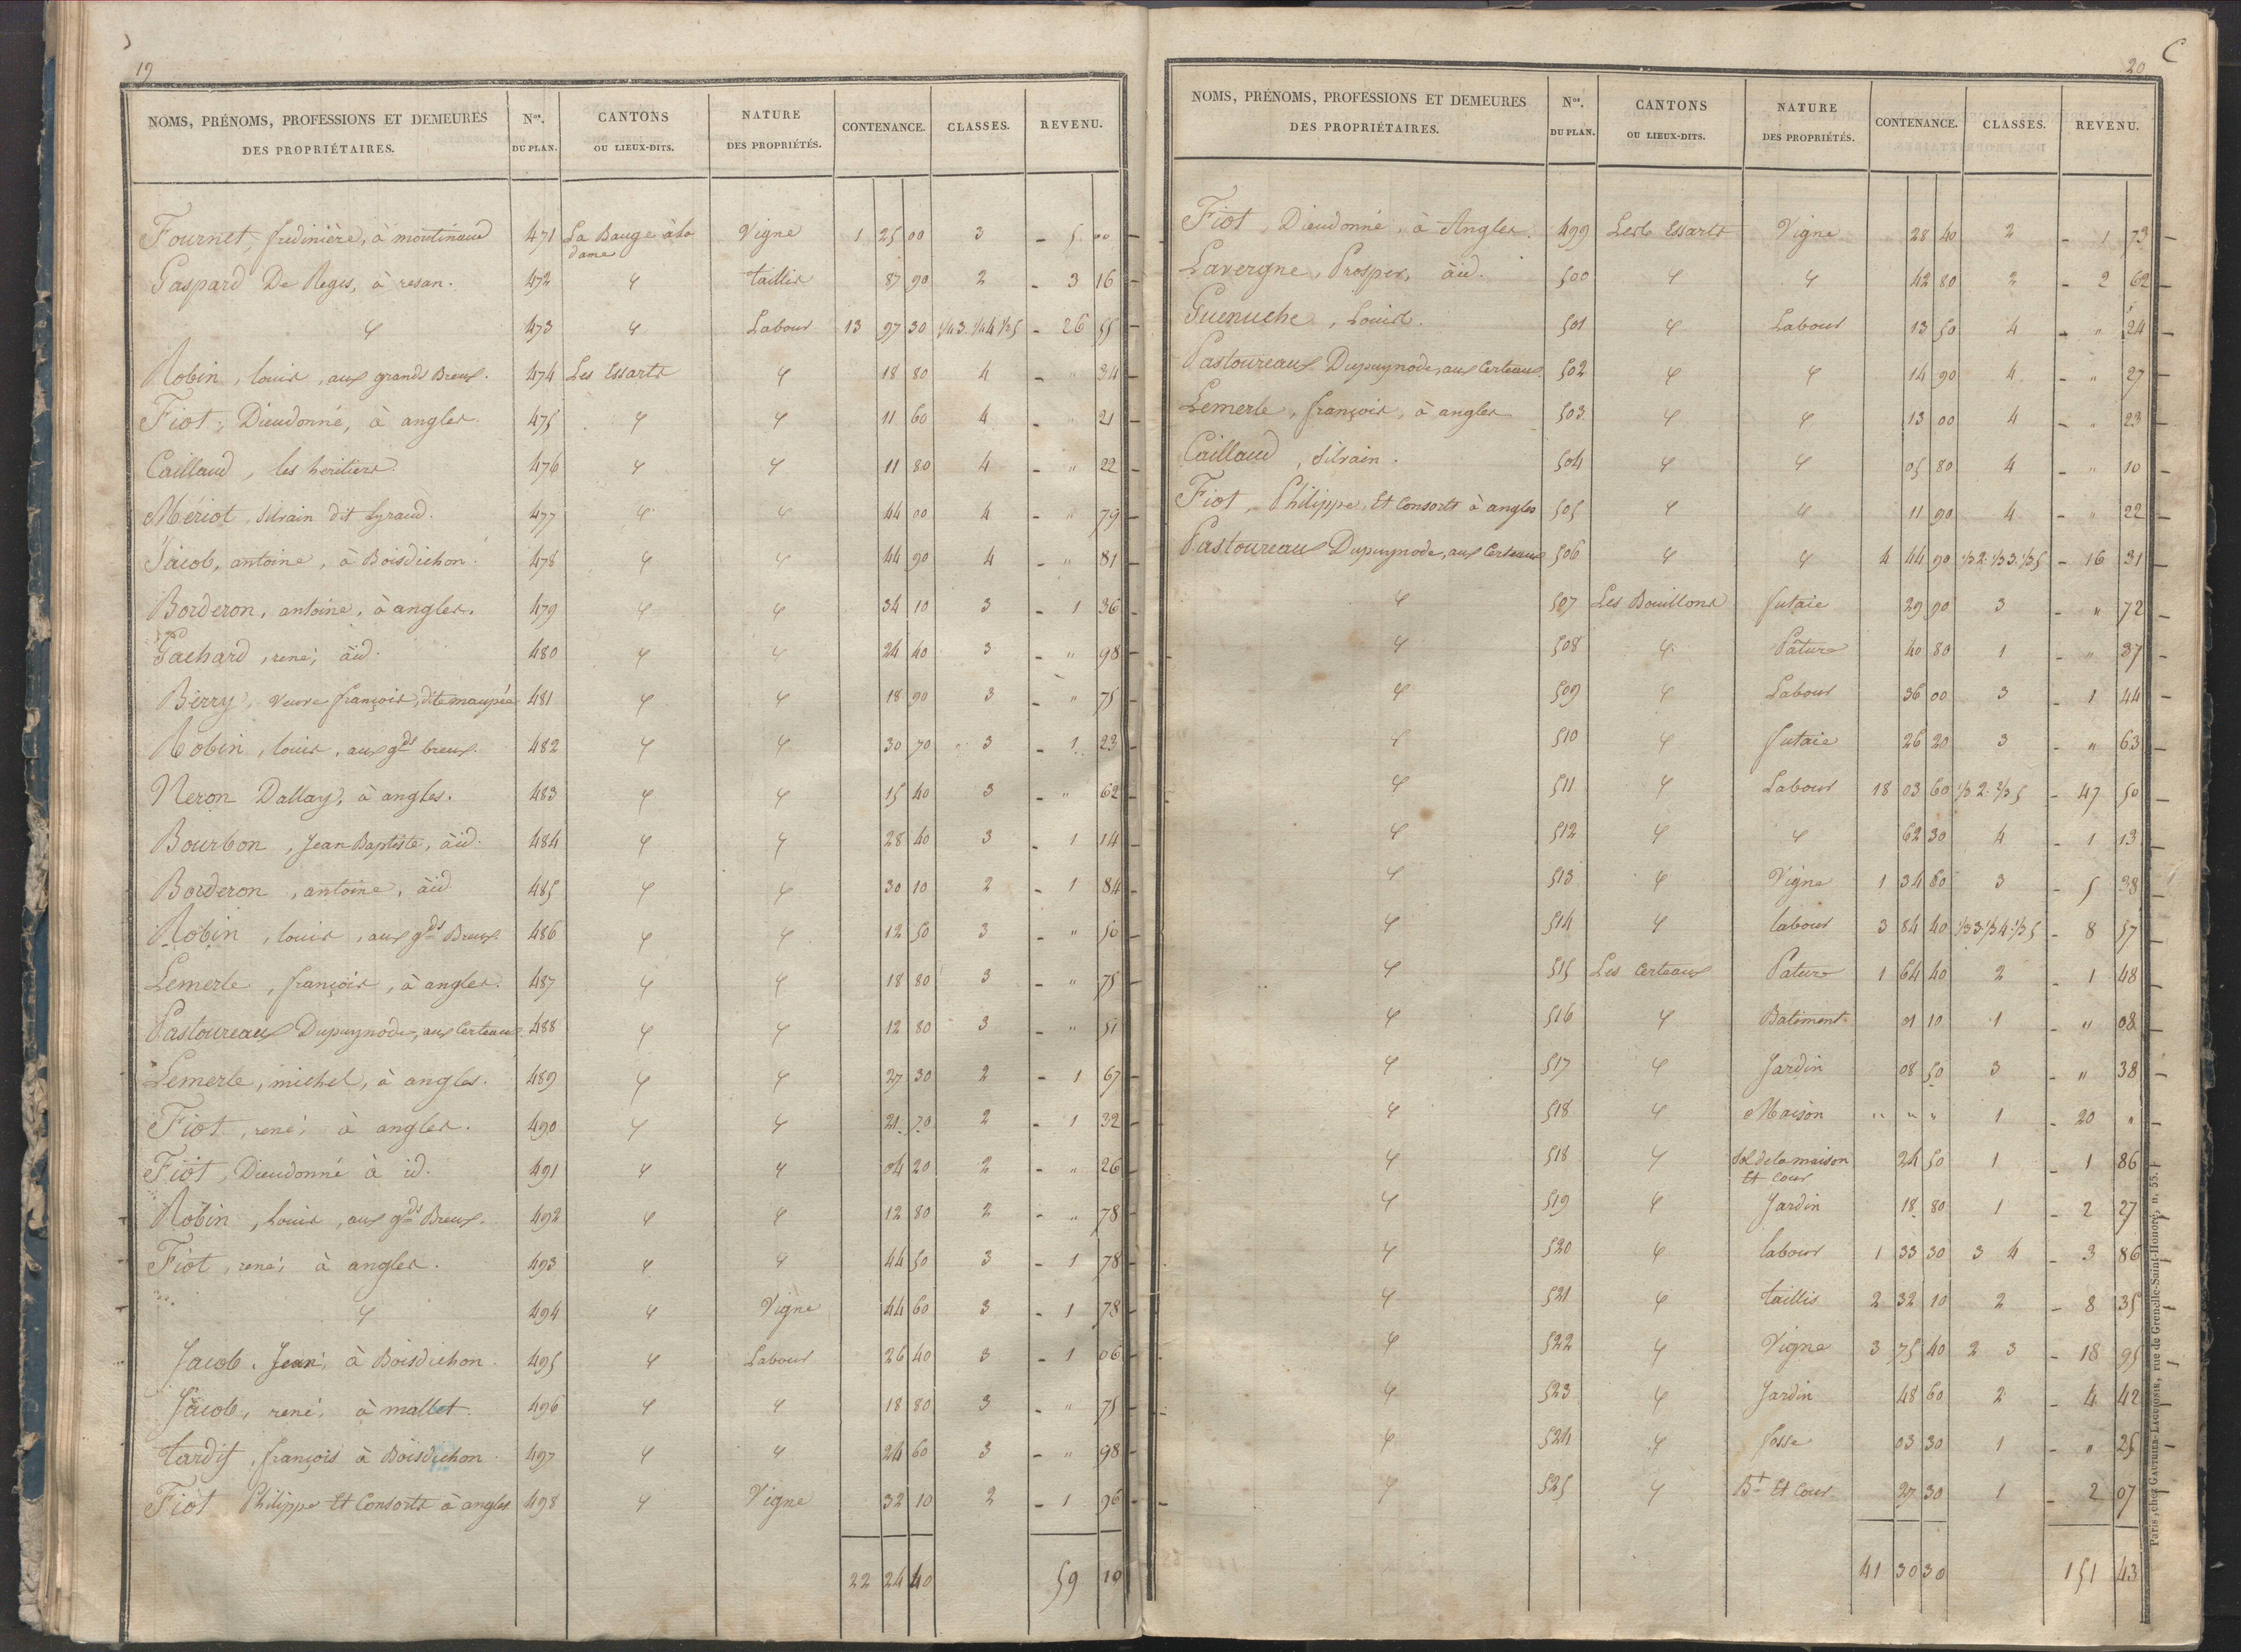 19
NOMS, PRÉNOMS, PROFESSIONS ET DEMEURES DES PROPRIÉTAIRES. Nos. DU PLAN. CANTONS OU LIEUX-DITS. NATURE DES PROPRIÉTÉS. CONTENANCE. CLASSES. REVENU.
Fournet, à moutinaud 471 La Bauge à la dame Vigne 1 25 00 3 - 5 00
Gaspard De Regis, à resan. 472 " taillis 87 90 2 - 3 16
" 473 " Labour 13 97 30 1/4 3. 1/4 4 1/2 5 - 26 55
Robin, louis, aux grands Breux. 474 Les Essarts " 18 80 4 - " 34
Fiot, Dieudonné, à angles. 475 " " 11 60 4 - " 21
Caillaud, les heritiers. 476 " " 11 80 4 - " 22
Mériot, silvain dit Lyraud. 477 " " 44 00 4 - " 79
Jacob, antoine, à Boisdichon. 478 " " 44 90 4 - " 81
Borderon, antoine, à angles. 479 " " 34 10 3 - 1 36
Gachard, rené, à id. 480 " " 24 40 3 - " 98
Berry, veuve françois, dite maupéa 481 " " 18 90 3 - " 75
Robin, louis, aux gds breux. 482 " " 30 70 3 - 1 23
Neron Dallay, à angles. 483 " " 15 40 3 - " 62
Bourbon, Jean Baptiste, à id. 484 " " 28 40 3 - 1 14
Borderon, antoine, à id 485 " " 30 10 2 - 1 84
Robin, louis, aux gds Breux. 486 " " 12 50 3 - " 50
Lemerle, françois, à angles. 487 " " 18 80 3 - " 75
Pastoureaux Dupuynode, aux Certeaux. 488 " " 12 80 3 - " 51
Lemerle, michel, à angles. 489 " " 27 30 2 - 1 67
Fiot, rené, à angles. 490 " " 21 70 2 - 1 32
Fiot, Dieudonné à id. 491 " " 04 20 2 - " 26
Robin, Louis, aux gds Breux. 492 " " 12 80 2 - " 78
Fiot, rené, à angles. 493 " " 44 50 3 - 1 78
" 494 " Vigne 44 60 3 - 1 78
Jacob, Jean, à Boisdichon. 495 " Labour 26 40 3 - 1 06
Jacob, rené, à mallet. 496 " " 18 80 3 - " 75
tardif, françois à Boisdichon. 497 " " 24 60 3 - " 98
Fiot, Philippe Et Consorts à angles 498 " Vigne 32 10 2 - 1 96
22 24 40 59 10
20
C
NOMS, PRÉNOMS, PROFESSIONS ET DEMEURES DES PROPRIÉTAIRES. Nos. DU PLAN. CANTONS OU LIEUX-DITS. NATURE DES PROPRIÉTÉS. CONTENANCE. CLASSES. REVENU.
Fiot, Dieudonné, à Angles. 499 Les Essarts Vigne 28 40 2 - 1 73
Lavergne, Prosper, à id. 500 " " 42 80 2 - 2 62
Guenuche, Louis. 501 " Labour 13 50 4 - " 24
Pastoureaux Dupuynode, aux Certeaux. 502 " " 14 90 4 - " 27
Lemerle, françois, à angles 503 " " 13 00 4 - " 23
Caillaud, silvain. 504 " " 05 80 4 - " 10
Fiot, Philippe, Et Consorts à angles 505 " " 11 90 4 - " 22
Pastoureaux Dupuynode, aux Certeaux 506 " " 4 44 90 1/3 2. 1/3 3. 1/3 5 - 16 31
" 507 Les Bouillons futaie 29 90 3 - " 72
" 508 " Pâture 40 80 1 - " 37
" 509 " Labour 36 00 3 - 1 44
" 510 " futaie 26 20 3 - " 63
" 511 " Labour 18 03 60 1/3 2. 2/3 5 - 47 50
" 512 " " 62 30 4 - 1 13
" 513 " Vigne 1 34 60 3 - 5 38
" 514 " labour 3 84 40 1/3 3. 1/3 4. 1/3 5 - 8 57
" 515 Les Certeaux Pature 1 64 40 2 - 1 48
" 516 " Batiment 01 10 1 - " 08
" 517 " Jardin 08 50 3 - " 38
" 518 " Maison " " " 1 - 20 "
" 518 " Sol de la maison Et Cour 24 50 1 - 1 86
" 519 " Jardin 18 80 1 - 2 27
" 520 " labour 1 33 30 3 4 - 3 86
" 521 " taillis 2 32 10 2 - 8 35
" 522 " Vigne 3 75 40 2 3 - 18 95
" 523 " Jardin 48 60 2 - 4 42
" 524 " fosse 03 30 1 - " 25
" 525 " Bt Et Cour 27 30 1 - 2 07
41 30 30 151 43
Paris, chez GAUTIER-LAGUIONIE, rue de Grenelle-Saint-Honoré, n. 55.